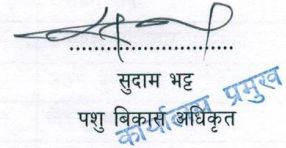 सुदाम भट्ट
पशु बिकास अधिकृत
कार्यालय प्रमुख